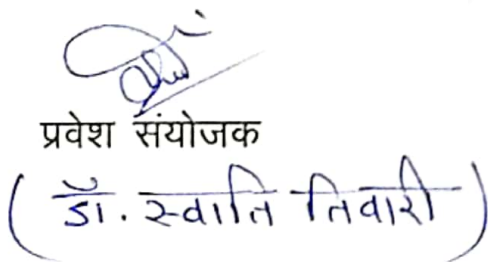 प्रवेश संयोजक
(डॉ. स्वाति तिवारी)